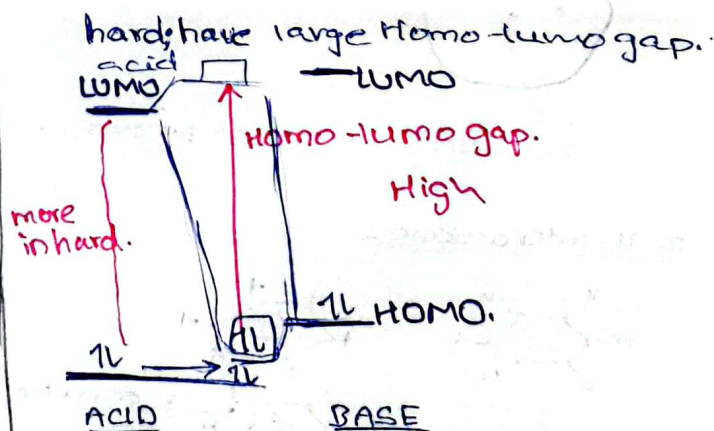 hard; have large Homo-lumo gap.
acid
LUMO
LUMO
Homo-lumo gap.
High
more
in hard.
1L
1L HOMO.
1L
1L
ACID
BASE